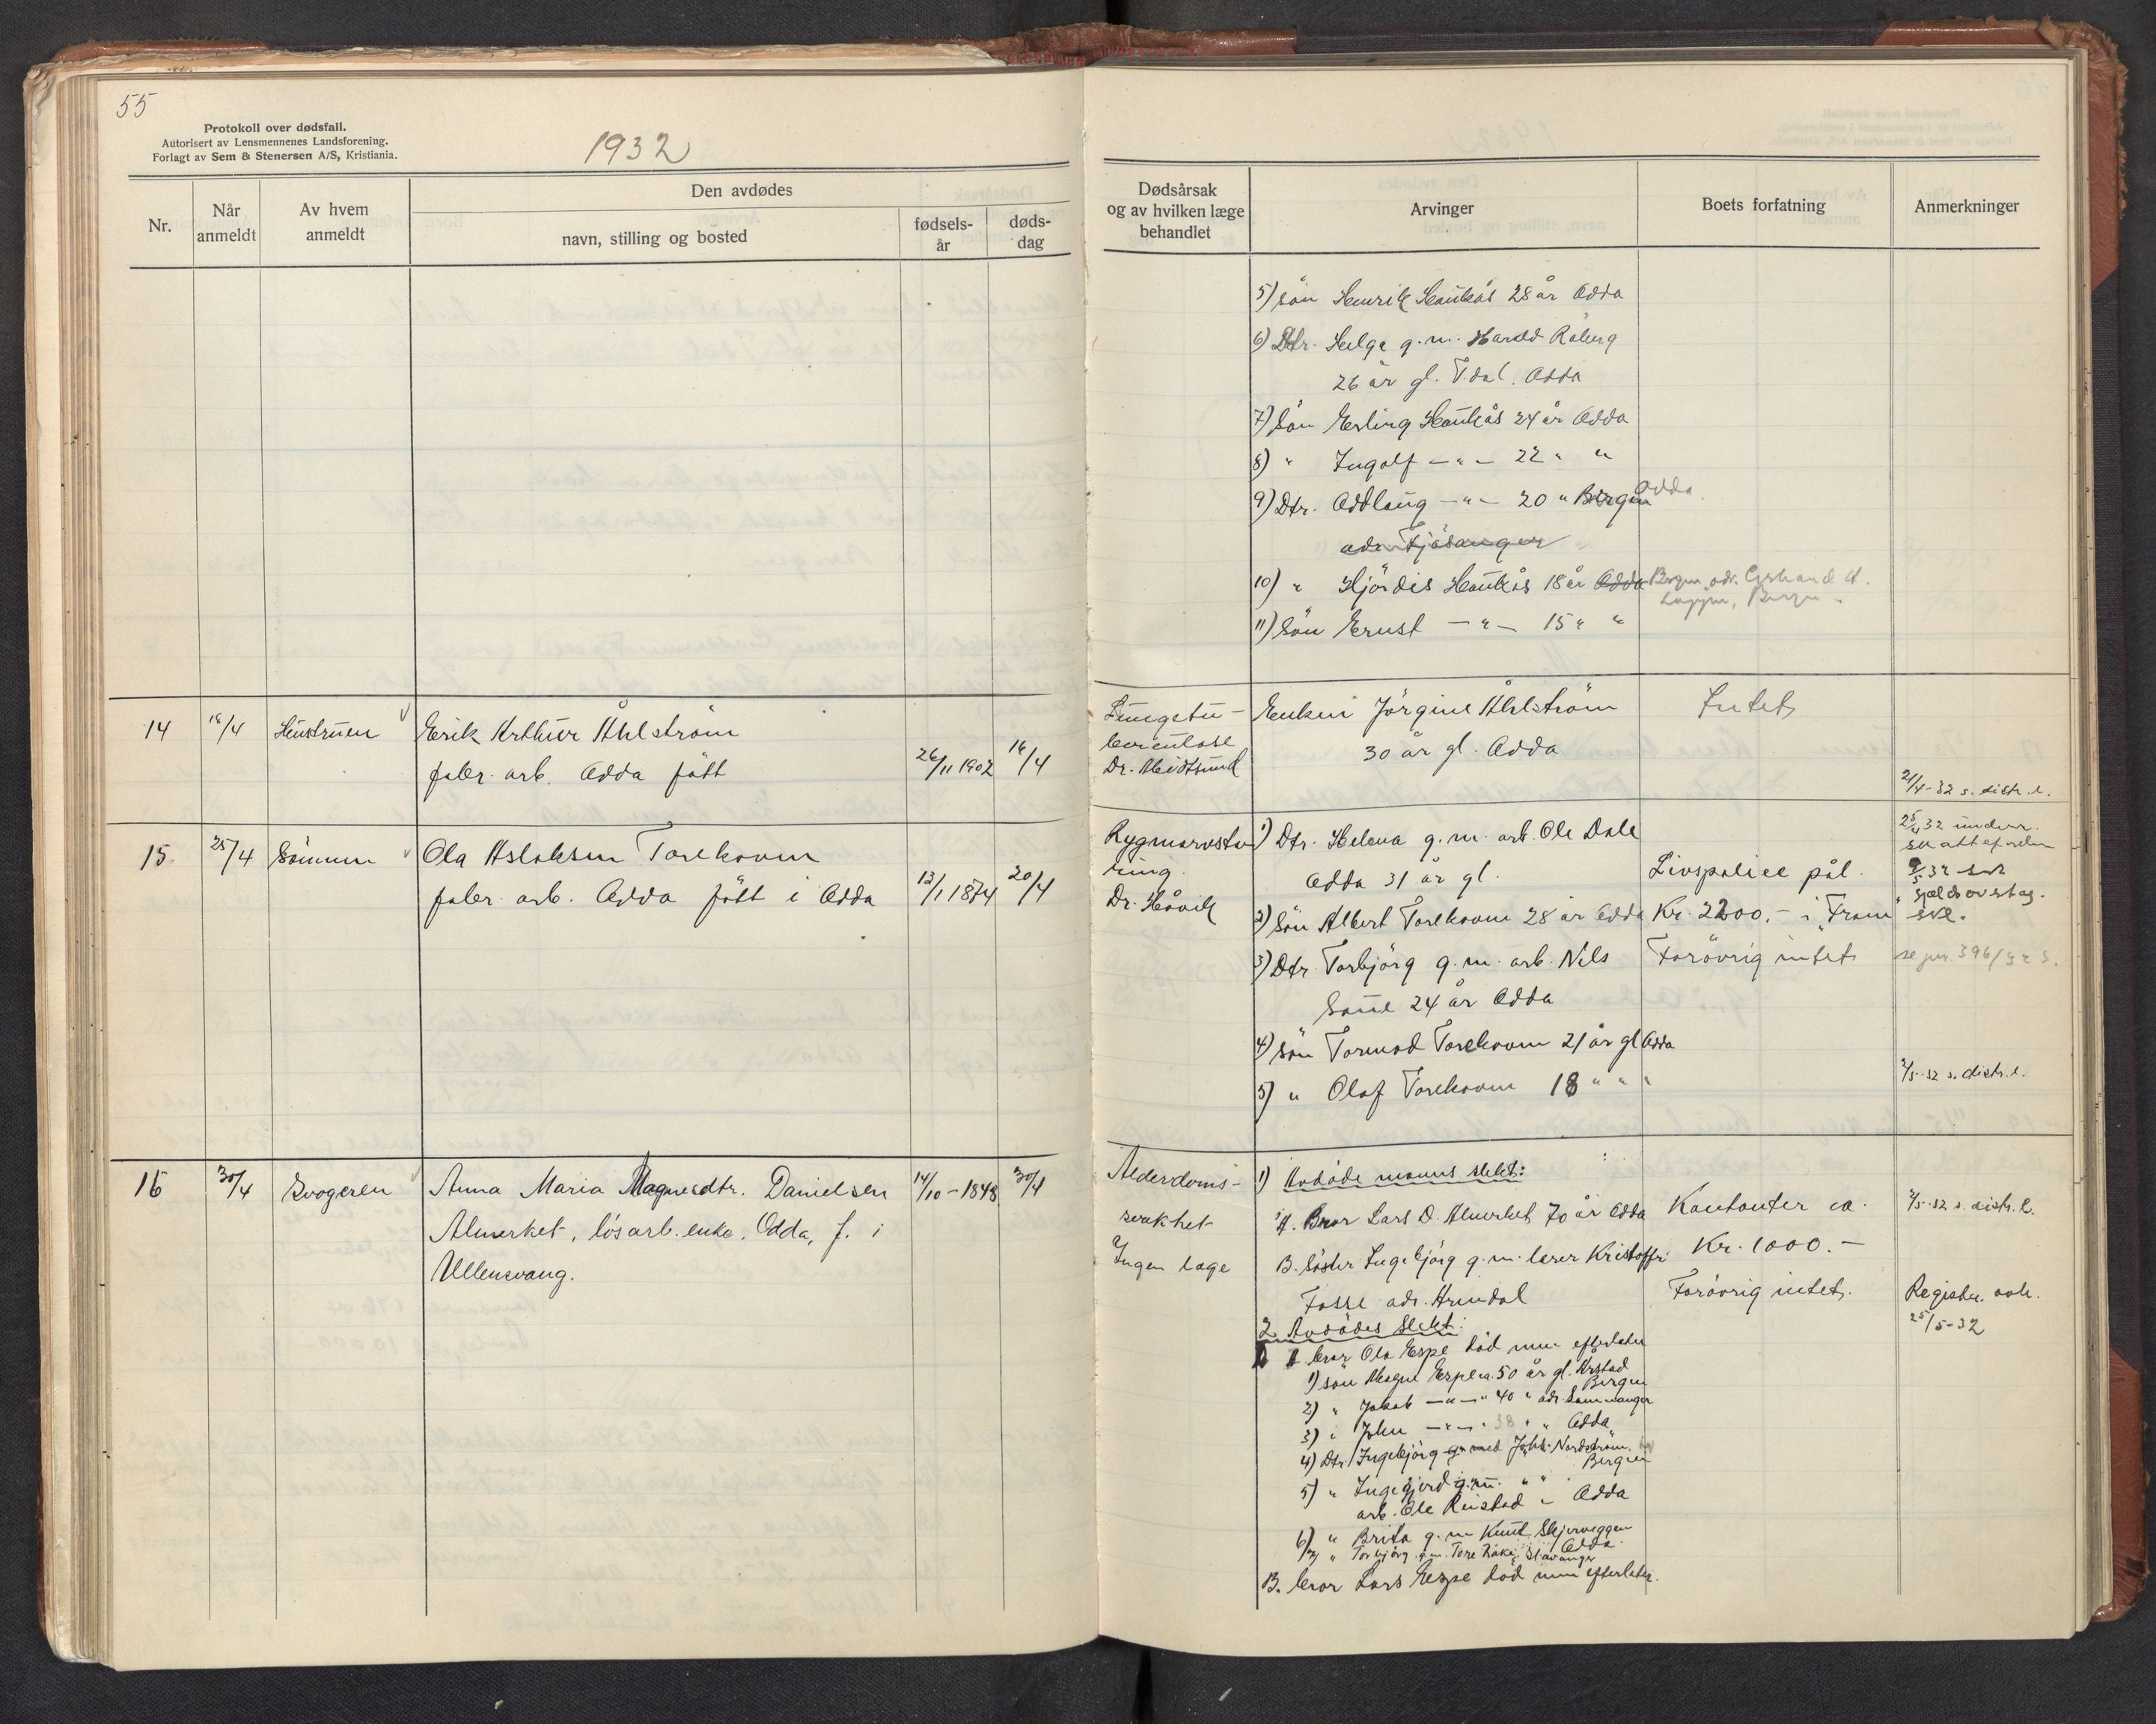 55
Protokoll over dødsfall.
Autorisert av Lensmennenes Landsforening.
Forlagt av Sem & Stenersen A/S, Kristiania.
1932
Nr.
Når anmeldt
Av hvem anmeldt
Den avdødes
navn, stilling og bosted
fødsels-
år
døds-
dag
Dødsårsak
og av hvilken læge
behandlet
Arvinger
Boets forfatning
Anmerkninger
5) Sön Henrik Haukås 28 år Odda
6) Dtr. Helga g.m. Harald Råberg
26 år gl. T.dal. Odda
7) Sön Erling Haukås 24 år Odda
8) " Ingolf —"— 22 " "
9) Dtr. Oddlaug —"— 20 " Bergen Odda.
adr. Fjösanger
10) " Hjördis Haukås 18 år Odda Bergen, adr.
Bergen
11) Sön Ernst —"— 15 " "
14
16/4
Hustruen
Erik Arthur Åhlström
fabr. arb. Odda född
26/11 1902
16/4
Lungetu-
berculose
Dr. Meidtsund
Enken Jörgine Åhlström
30 år gl. Odda
Intet
21/4-32 s. distr. l.
15
25/4
Sönnen
Ola Aslaksen Torekoven
fabr. arb. Odda född i Odda
13/1 1874
20/4
Rygmarvstæ-
ring
Dr. Håvik
1) Dtr. Helena g.m. arb. Ole Dale
Odda 31 år gl.
2) Sön Albert Torekoven 28 år Odda
3) Dtr. Torbjörg g.m. arb. Nils
24 år Odda
4) Sön Tormod Torekoven 21 år gl Odda
5) " Olaf Torekoven 18 " " "
Livspolice pål.
Kr. 2200,- i "Fram"
Forövrig intet
25/4 32 underr.
9/5 32
gjeldsovertag.
se jnr. 396/32 S.
2/5-32 s. distr. l.
16
30/4
Svogeren
Anna Maria Magnesdtr. Danielsen
Almerket, lösarb. enke, Odda, f. i
Ullensvang.
14/10-1848
30/4
Alderdoms-
svakhet
Ingen læge
1) Avdöde manns slekt:
A. Bror Lars D. Almerket 70 år Odda
B. Söster Ingebjörg g.m. lærer Kristoffer
Fosse adr. Arendal
2. Avdödes slekt:
A bror Ola Espe död men efterlater
1) sön Magne Espe ca. 50 år gl. Årstad
Bergen
2) " Jakob —"— " 40 " adr. Samnanger
3) " John —"— " 38 " " Odda
4) Dtr. Ingebjörg g. med Joh. Nordström.
Bergen
5) " Ingegjerd g.m. " "
arb. Ole Reistad " Odda
6) " Brita g.m. Knut Skjerveggen
Odda
7) " Torbjörg g.m. Tore Stavanger
B. bror Lars Espe död men efterlater.
Kontanter ca.
Kr. 1000.-
Forövrig intet.
2/5-32 s. distr. l.
Registr. avh.
25/5-32